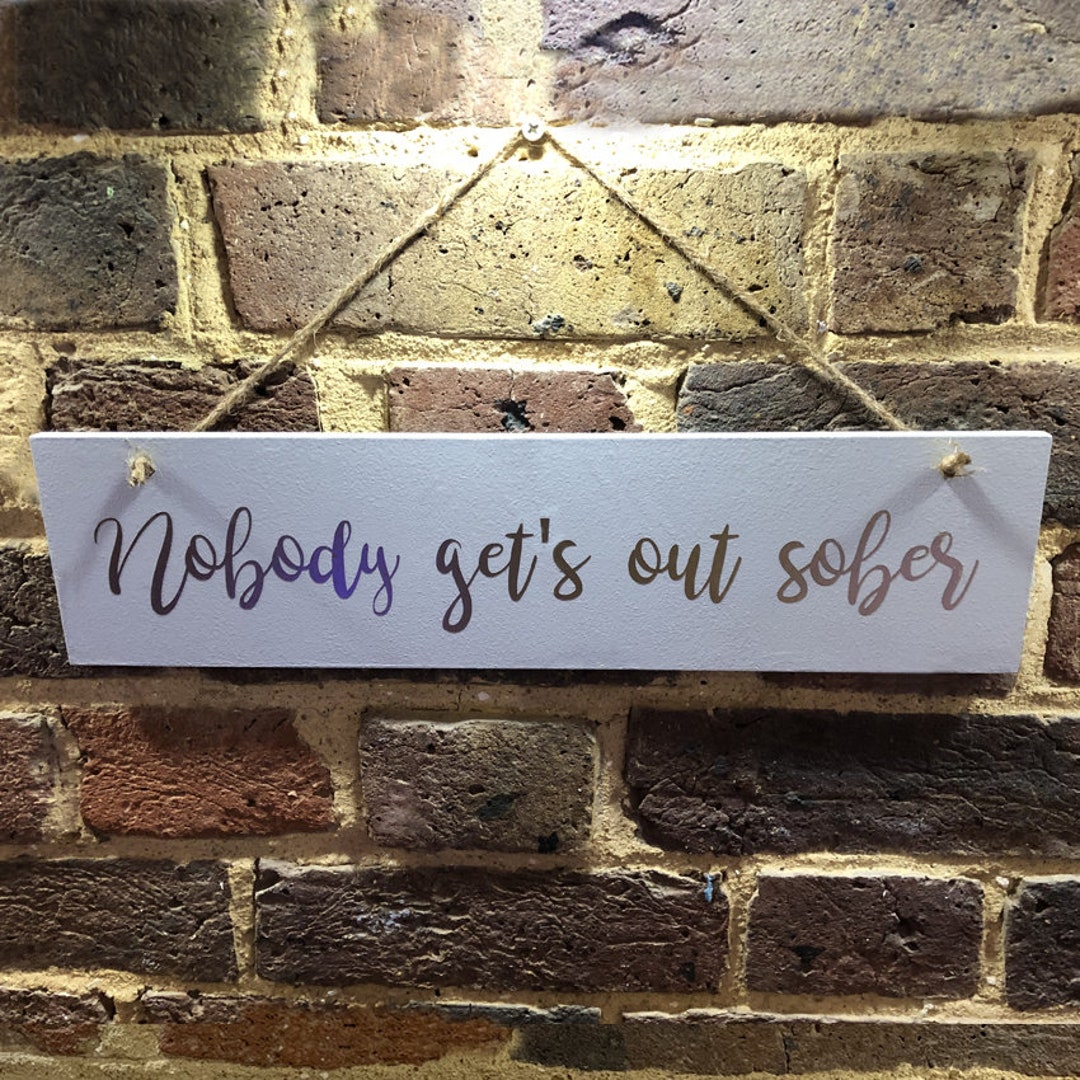 Nobody get's out sober